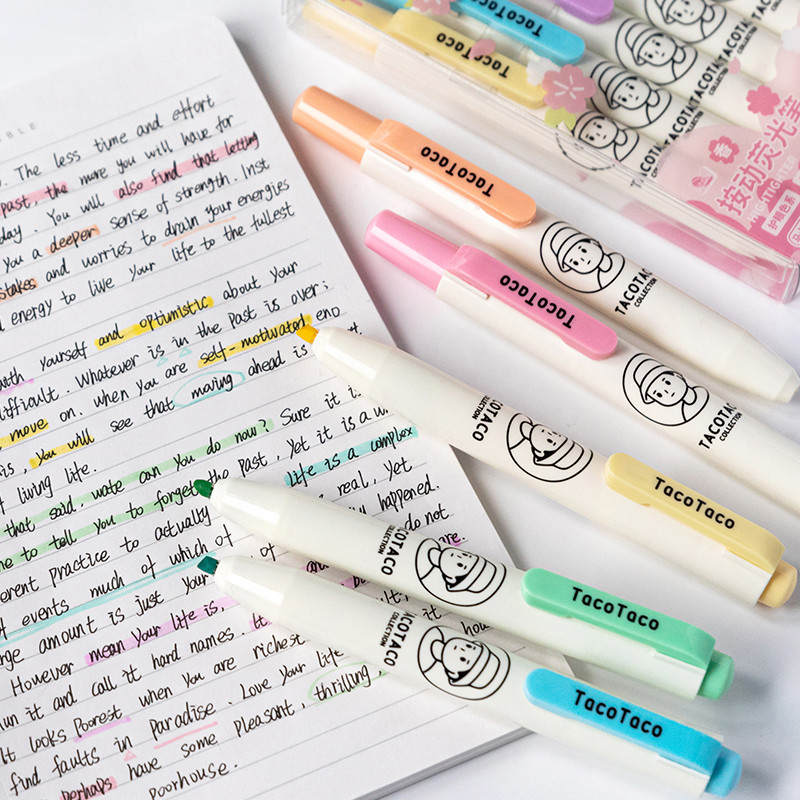 BLE
. The less time and effort
past, the more you will have for
day. You will also find that letting
you a deeper sense of strength. Inst
stakes and worries to drain your energies
energy to live your life to the fullest
with yourself and optimistic about your
difficult. Whatever is in the past is over;
move on. when you are self-motivated eno
is, you will see that moving ahead is
living life.
that said, wate can you do now? Sure it is
me to tell you to forget the past, yet it is a
erent practice to actually life is a complex
of events much of which of real, yet
rge amount is just your happened.
However mean your life is, do not
un it and call it hard names. It are.
It looks poorest when you are richest
find faults in paradise. Love your life
perhaps have some pleasant, thrilling,
poorhouse.
TacoTaco
TacoTaco
TacoTaco
TacoTaco
TACOTACO
COLLECTION
TacoTaco
TACOTACO
COLLECTION
TacoTaco
TACOTACO
COLLECTION
TacoTaco
TACOTACO
COLLECTION
TacoTaco
TACOTACO
COLLECTION
按动荧光笔
护眼色系